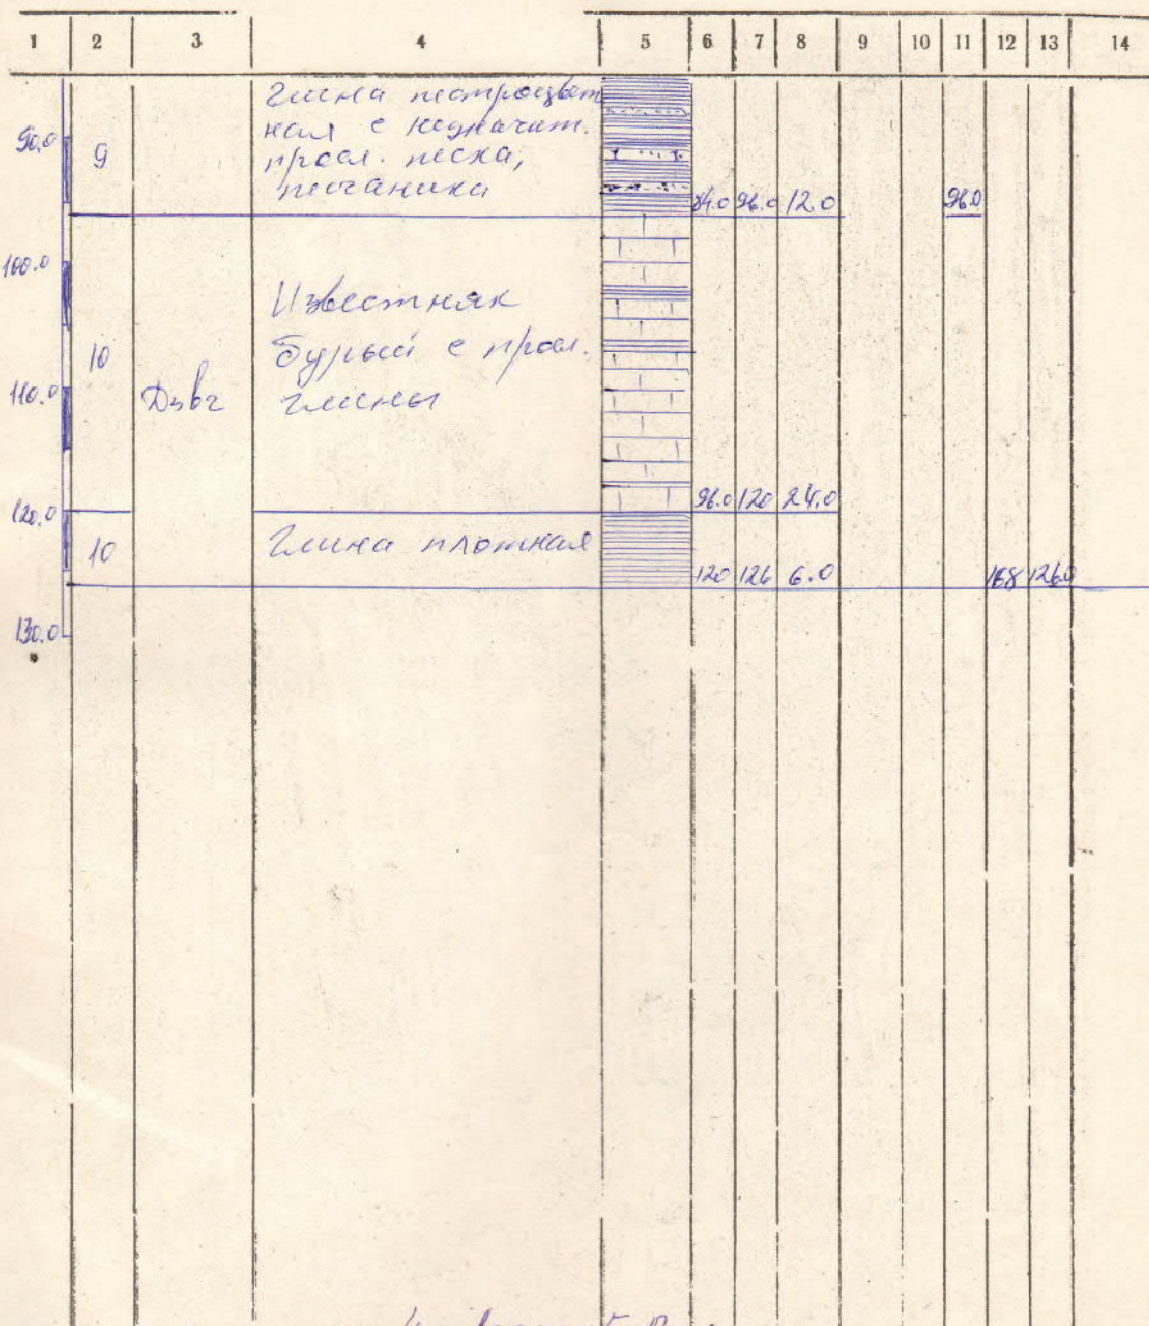 1 2 3 4 5 6 7 8 9 10 11 12 13 14
глина пестроцвет
ная с незначит.
90.0 9 просл. песка,
песчаника
84.0 96.0 12.0 96.0
100.0
Известняк
10 бурый с просл.
110.0 D3вг глины
96.0 120 24.0
120.0
10 Глина плотная
120 126 6.0 168 126.0
130.0